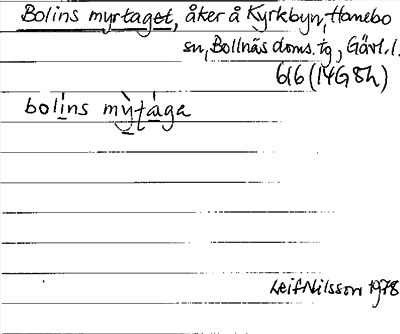 Bolins myrtaget, åker å Kyrkbyn, Hanebo
sn, Bollnäs doms. tg, Gävl. l.
616 (14G 8h)
bolíns mỳtåga
Leif Nilsson 1978